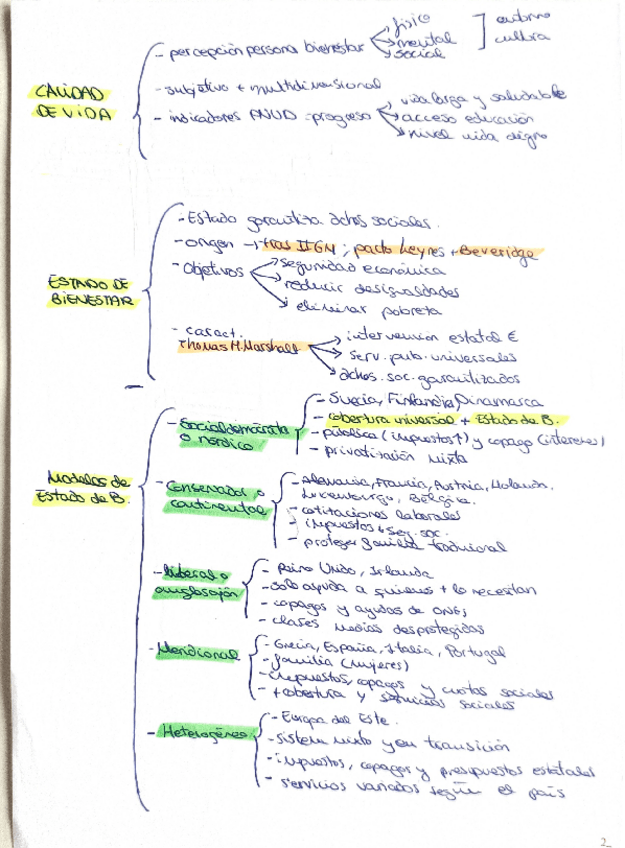 físico
entorno
- percepción persona bienestar
mental
cultura
social
CALIDAD
DE VIDA
- subjetivo + multidimensional
vida larga y saludable
- indicadores PNUD - progreso
acceso educación
nivel vida digno
- Estado garantiza dchos sociales.
- origen → tras II GM ; pacto Keynes + Beveridge
ESTADO DE
BIENESTAR
- Objetivos
seguridad económica
reducir desigualdades
eliminar pobreza
- caract.
Thomas H. Marshall
intervención estatal €
serv. pub. universales
dchos. soc. garantizados
Modelos de
Estado de B.
- Socialdemócrata
o nórdico
- Suecia, Finlandia, Dinamarca
- cobertura universal + Estado de B.
- pública (impuestos ↑) y copago (intereses)
- privatización mixta
- Conservador o
continental
- Alemania, Francia, Austria, Holanda,
Luxemburgo, Bélgica.
- cotizaciones laborales
- impuestos + seg. soc.
- proteger familia tradicional
- Liberal o
anglosajón
- Reino Unido, Irlanda
- solo ayuda a quienes + lo necesitan
- copagos y ayudas de ONGs
- clases medias desprotegidas
- Meridional
- Grecia, España, Italia, Portugal
- familia (mujeres)
- impuestos, copagos y cuotas sociales
- + cobertura y servicios sociales
- Heterogéneo
- Europa del Este.
- sistema mixto y en transición
- impuestos, copagos y presupuestos estatales
- servicios variados según el país
2